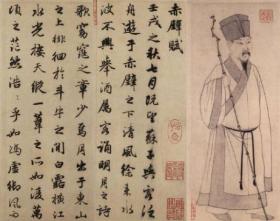 赤壁賦
壬戌之秋七月既望蘇子與客泛
舟遊于赤壁之下清風徐来水
波不興舉酒屬客誦明月之詩
歌窈窕之章少焉月出于東山
之上徘徊於斗牛之間白露横江
水光接天縱一葦之所如凌萬
頃之茫然浩浩乎如馮虚御風而